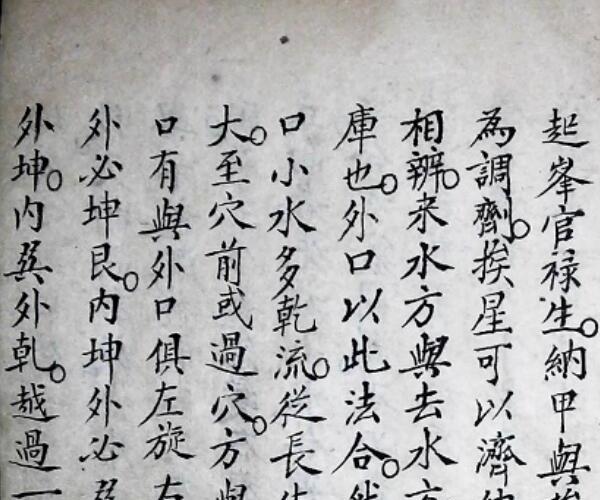 起峯官祿生。納甲與挨
為調劑。挨星可以濟納
相辨。来水方與去水方
庫也。外口以此法合。然
口小水多乾流。從長生
大。至穴前或過穴。方與
口有與外口俱左旋右
外必坤艮。内坤外必巽
外坤。内巽外乹。越過一